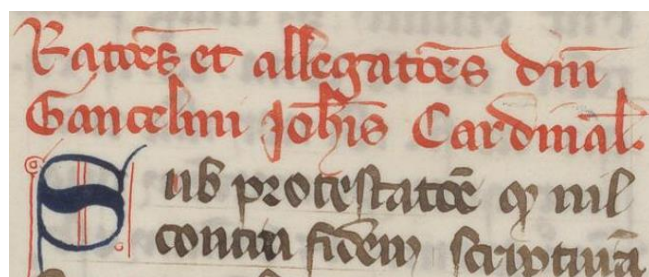 Ratoēs et allegatoēs dn̄i
Gancelmi Joh̄is Cardinal̄.
Sub protestatōe qꝫ nil
contra fidem scripturā